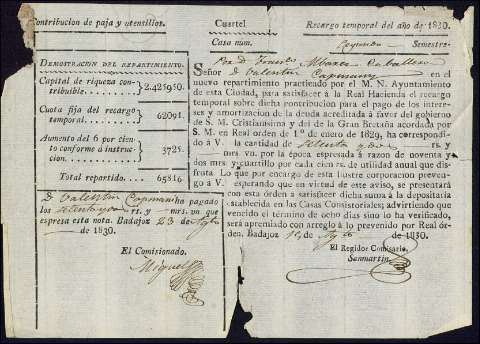 Contribucion de paja y utensilios.
Cuartel
Casa num.
Recargo temporal del año de 1830.
Semestre.
DEMOSTRACION DEL REPARTIMIENTO.
Capital de riqueza contribuible. 2.425950.
Cuota fija del recargo temporal. 62091.
Aumento del 6 por ciento conforme a instruccion. 3725.
Total repartido. 65816
D. Valentin Capmany ha pagado
los rs. y mrs. vn que
espresa esta nota. Badajoz 23 de Agto
de 1830.
El Comisionado.
Miguel
Señor D. Valentin Capmany en el
nuevo repartimiento practicado por el M. N. Ayuntamiento
de esta Ciudad, para satisfacer á la Real Hacienda el recargo
temporal sobre dicha contribucion para el pago de los intereses
y amortizacion de la deuda acreditada á favor del gobierno
de S. M. Cristianísima y del de la Gran Bretaña acordada por
S. M. en Real orden de 1.º de enero de 1829, ha correspondido
á V. la cantidad de setenta y dos rs. y
mrs. vn. por la época espresada á razon de noventa y
dos mrs. y cuartillo por cada cien rs. de utilidad anual que disfruta.
Lo que por encargo de esta ilustre corporacion prevengo
á V. esperando que en virtud de este aviso, se presentará
con esta orden á satisfacer dicha suma á la depositaría
establecida en las Casas Consistoriales; advirtiendo que
vencido el término de ocho dias sino lo ha verificado,
será apremiado con arreglo á lo prevenido por Real orden.
Badajoz de Agto de 1830.
El Regidor Comisario.
Sanmartin.